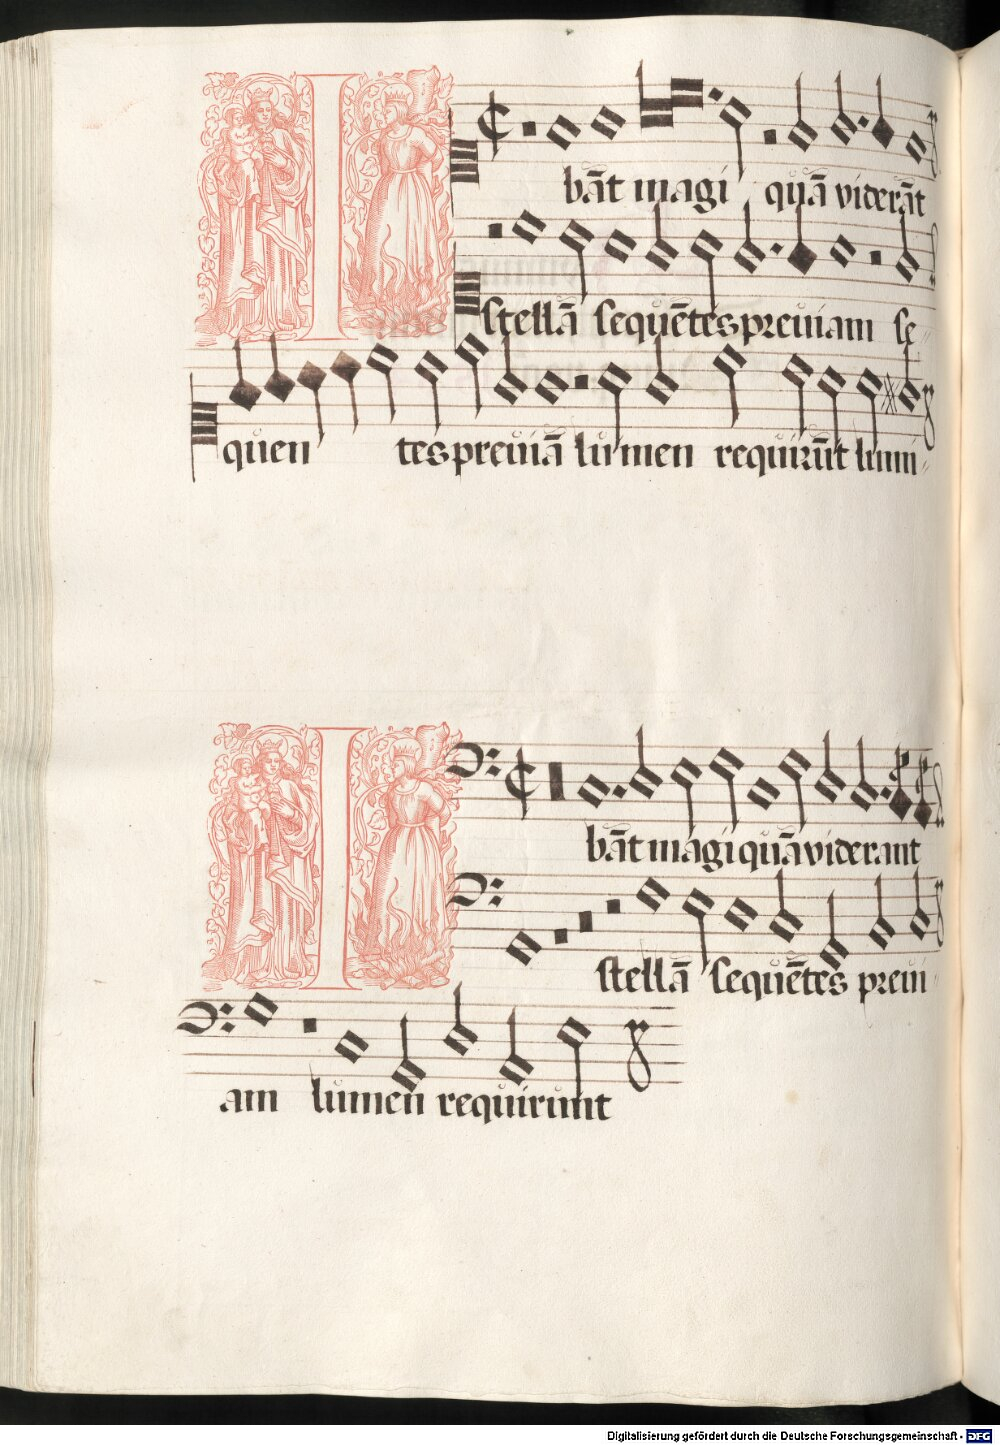 I
bāt magi quā viderāt
stellā sequētes previam se
quen tes previā lumen requirūt lumi
I
bāt magi quā viderant
stellā sequētes previ
am lumen requirunt
Digitalisierung gefördert durch die Deutsche Forschungsgemeinschaft - DFG